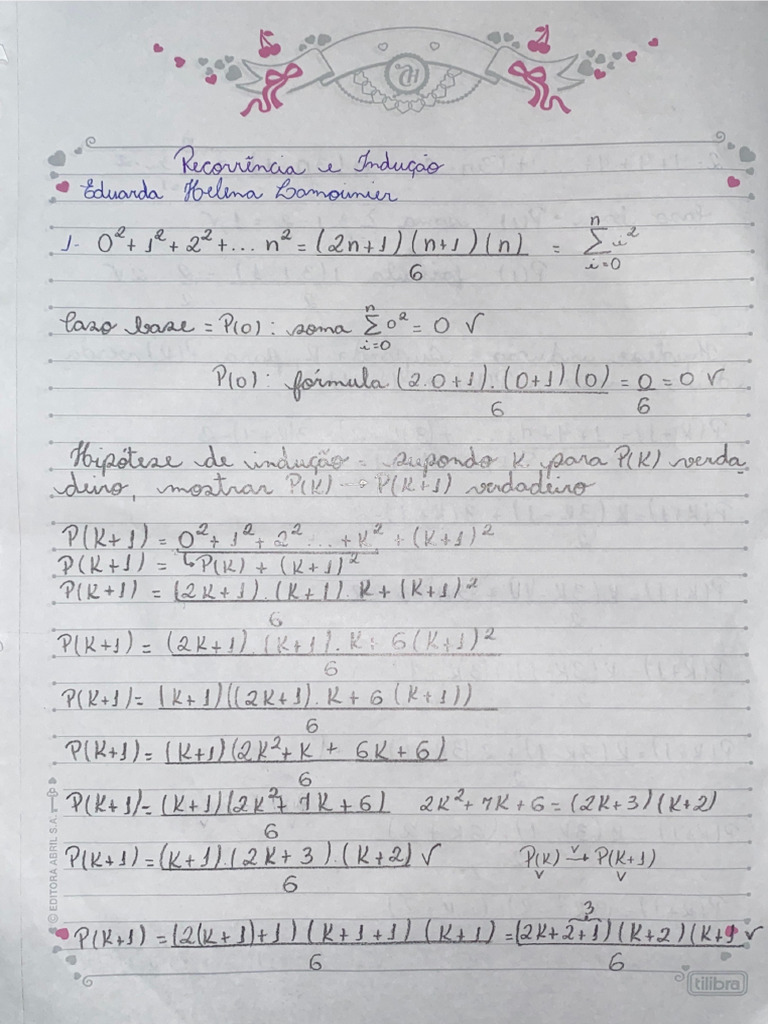 Recorrência e Indução
Eduarda Helena Lamounier
1- 0² + 1² + 2² + ... n² = (2n+1)(n+1)(n) / 6 = n∑i=0 i²
Caso base = P(0): soma n∑i=0 0² = 0 √
P(0): fórmula (2.0+1).(0+1)(0) / 6 = 0/6 = 0 √
Hipóteze de indução = supondo K para P(K) verda
deiro, mostrar P(K) → P(K+1) verdadeiro
P(K+1) = 0² + 1² + 2² ... + K² + (K+1)²
P(K+1) = ↳P(K) + (K+1)²
P(K+1) = (2K+1).(K+1).K / 6 + (K+1)²
P(K+1) = (2K+1).(K+1).K + 6(K+1)² / 6
P(K+1) = (K+1)((2K+1).K + 6(K+1)) / 6
P(K+1) = (K+1)(2K²+K + 6K+6) / 6
P(K+1) = (K+1)(2K²+7K+6) / 6 2K²+7K+6 = (2K+3)(K+2)
P(K+1) = (K+1).(2K+3).(K+2) / 6 √ P(K) → P(K+1)
v v v
3
P(K+1) = (2(K+1)+1)(K+1+1)(K+1) / 6 = (2K+2+1)(K+2)(K+1) / 6 √
© EDITORA ABRIL S.A.
tilibra